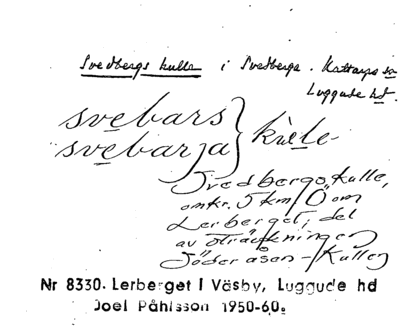 Svedbergs kulle i Svedberga. Kattarps sn
Luggude hd.
svebars } kùele
svebarja
Svedbergs kulle,
omkr. 5 km Ö om
Lerberget; del
av sträckningen
Söderåsen-Kullen
Nr 8330. Lerberget i Väsby, Luggude hd
Joel Påhlsson 1950-60.